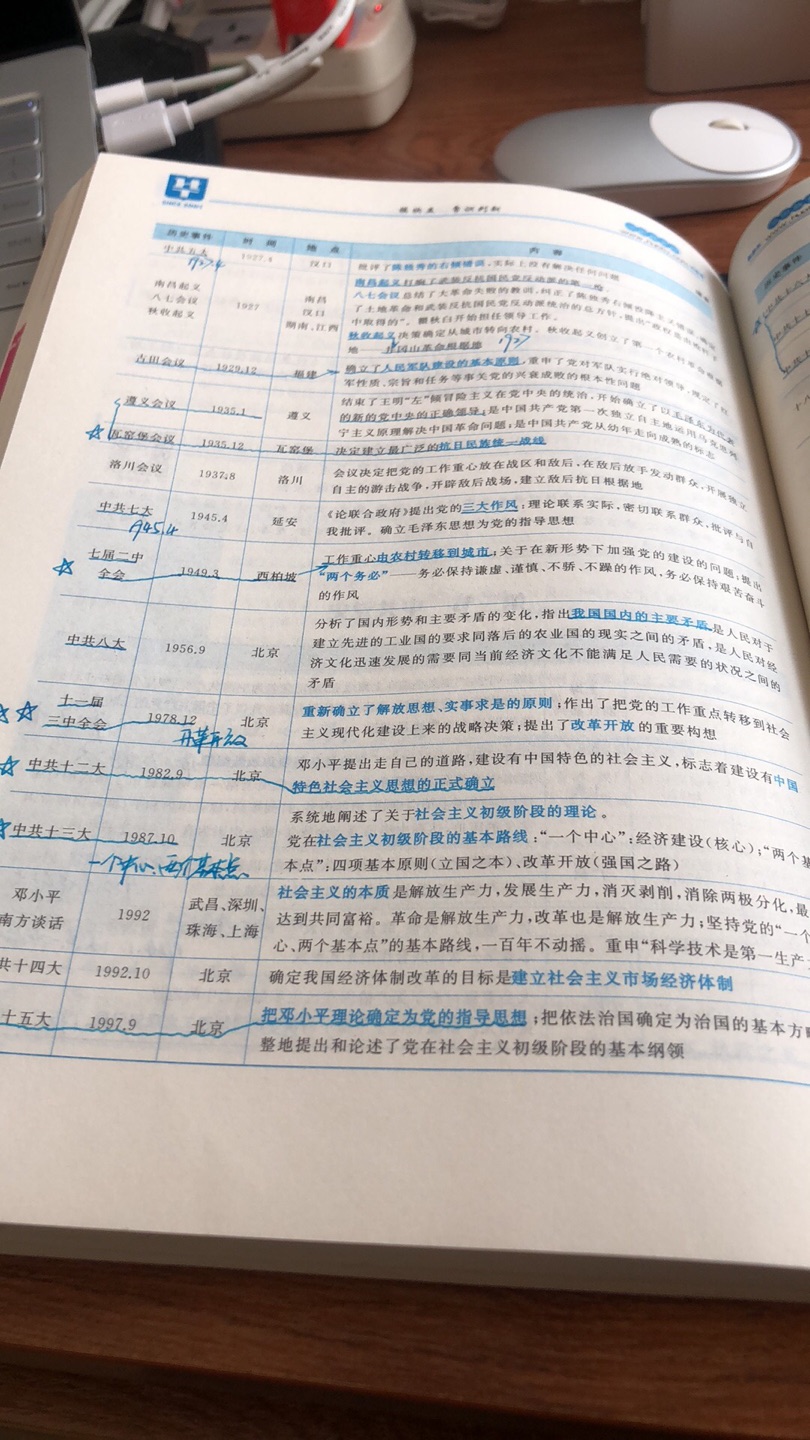 SINCE
常识判断
历史事件 时 间 地 点 内 容
中共五大 1927.4 汉口 批评了陈独秀的右倾错误,实际上没有解决任何问题
1927.4
南昌起义 1927 南昌 南昌起义打响了武装反抗国民党反动派的第一枪
八七会议 汉口 八七会议总结了大革命失败的教训,纠正了陈独秀右倾
秋收起义 湖南、江西 了土地革命和武装反抗国民党反动派统治的总方针,提出“政权是由枪杆子
中取得的”。瞿秋白开始担任领导工作。
秋收起义决策确定从城市转向农村。秋收起义创立了第一个农村革命根据
地——井冈山革命根据地 1927
古田会议 1929.12 福建 确立了人民军队建设的基本原则,重申了党对军队实行绝对领导,规定了红
军性质、宗旨和任务等事关党的兴衰成败的根本性问题
遵义会议 1935.1 遵义 结束了王明“左”倾冒险主义在党中央的统治,开始确立了以毛泽东为代表
的新的党中央的正确领导;是中国共产党第一次独立自主地运用马克思列
宁主义原理解决中国革命问题;是中国共产党从幼年走向成熟的标志
瓦窑堡会议 1935.12 瓦窑堡 决定建立最广泛的抗日民族统一战线
洛川会议 1937.8 洛川 会议决定把党的工作重心放在战区和敌后,在敌后放手发动群众,开展独立
自主的游击战争,开辟敌后战场,建立敌后抗日根据地
中共七大 1945.4 延安 《论联合政府》提出党的三大作风:理论联系实际,密切联系群众,批评与自
我批评。确立毛泽东思想为党的指导思想
1945.4
七届二中 1949.3 西柏坡 工作重心由农村转移到城市;关于在新形势下加强党的建设的问题;提出
全会 “两个务必”——务必保持谦虚、谨慎、不骄、不躁的作风,务必保持艰苦奋斗
的作风
中共八大 1956.9 北京 分析了国内形势和主要矛盾的变化,指出我国国内的主要矛盾是人民对于
建立先进的工业国的要求同落后的农业国的现实之间的矛盾,是人民对经
济文化迅速发展的需要同当前经济文化不能满足人民需要的状况之间的
矛盾
十一届 1978.12 北京 重新确立了解放思想、实事求是的原则;作出了把党的工作重点转移到社会
三中全会 主义现代化建设上来的战略决策;提出了改革开放的重要构想
改革开放
中共十二大 1982.9 北京 邓小平提出走自己的道路,建设有中国特色的社会主义,标志着建设有中国
特色社会主义思想的正式确立
中共十三大 1987.10 北京 系统地阐述了关于社会主义初级阶段的理论。
党在社会主义初级阶段的基本路线:“一个中心”:经济建设(核心);“两个基
本点”:四项基本原则(立国之本)、改革开放(强国之路)
一个中心、两个基本点
邓小平 1992 武昌、深圳、 社会主义的本质是解放生产力,发展生产力,消灭剥削,消除两极分化,最
南方谈话 珠海、上海 达到共同富裕。革命是解放生产力,改革也是解放生产力;坚持党的“一个
心、两个基本点”的基本路线,一百年不动摇。重申“科学技术是第一生产
共十四大 1992.10 北京 确定我国经济体制改革的目标是建立社会主义市场经济体制
十五大 1997.9 北京 把邓小平理论确定为党的指导思想;把依法治国确定为治国的基本方略
整地提出和论述了党在社会主义初级阶段的基本纲领
历史事件